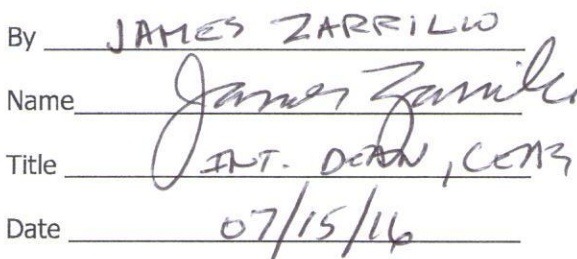 By JAMES ZARRILLO
Name James Zarrillo
Title INT. DEAN,
Date 07/15/16